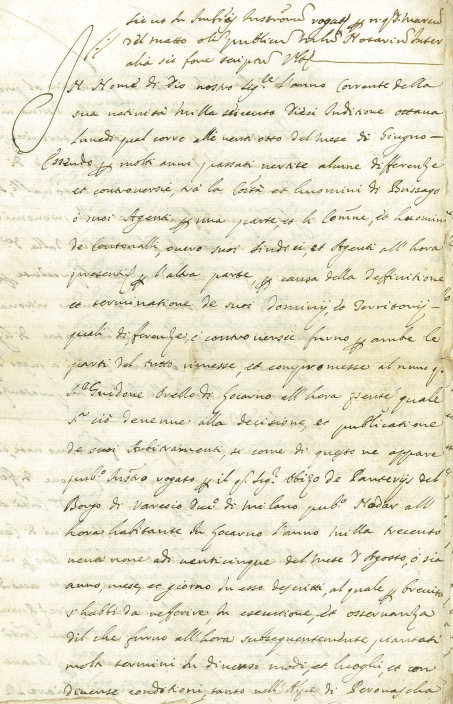 sic ut in Instrõ rogat per q. marcũ
del matto olĩ publicũ Notariũ Inter
alia sic fore scriptũ Vltʳ
Nel Nome di Dio nostro Sigʳᵉ l'anno Corrente della
sua natività mille seicento Dieci Inditione ottava
lunedi qual corre alli venti otto del mese di Giugno
Essendo per molti anni passati vertite alcune differenze
et controversie, trà la Cõtà et huomini di Bissago
ò suoi Agenti per una parte, et li Com̃ne, et huomini
de Centovalli, overo suoi sindici, et Agenti all'hora
presenti per l'altra parte, per causa della deffinitione
et terminatione de suoi Dominij, et Territorij
quali differenze, e controversie furno per ambe le
parti del tutto rimesse, et compromesse al nunc q.
Sʳ Guidone Duello di Locarno all'hora pñte quale
Sʳ ciò devenne alla decisione, et publicatione
de suoi Arbitramenti, si come di questo ne appare
pubᶜᵒ Instrõ rogato per il q. Sigʳ Obizo de Panterijs del
Borgo di Varesio Ducᵗᵒ di Milano pubᶜᵒ Nodar all'
hora habitante in Locarno l'anno mille trecento
nena none adi venticinque del mese d'Agosto, ò sia
anno, mese, et giorno in esso descritti, al quale per brevità
s'habbi da refferire in esecutione, et osservanza
dil che furno all'hora subsequentemente piantati
molti termini in diversi modi, et luoghi, et con
diverse conditioni, tanto nell'Alpe di Peronascha